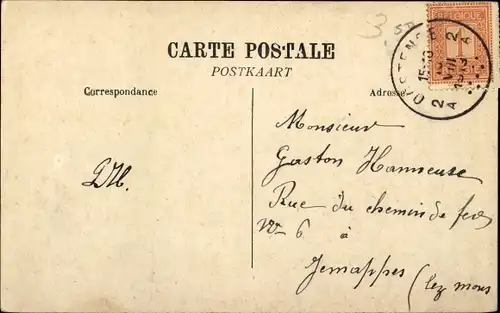 3 52
BELGIQUE
CARTE POSTALE
POSTKAART
Correspondance
Adresse
OOSTENDE 2 A
2 A
Monsieur
Gaston Hanneuse
Rue du chemin de fer
N° 6 à
Jemappes (lez mons